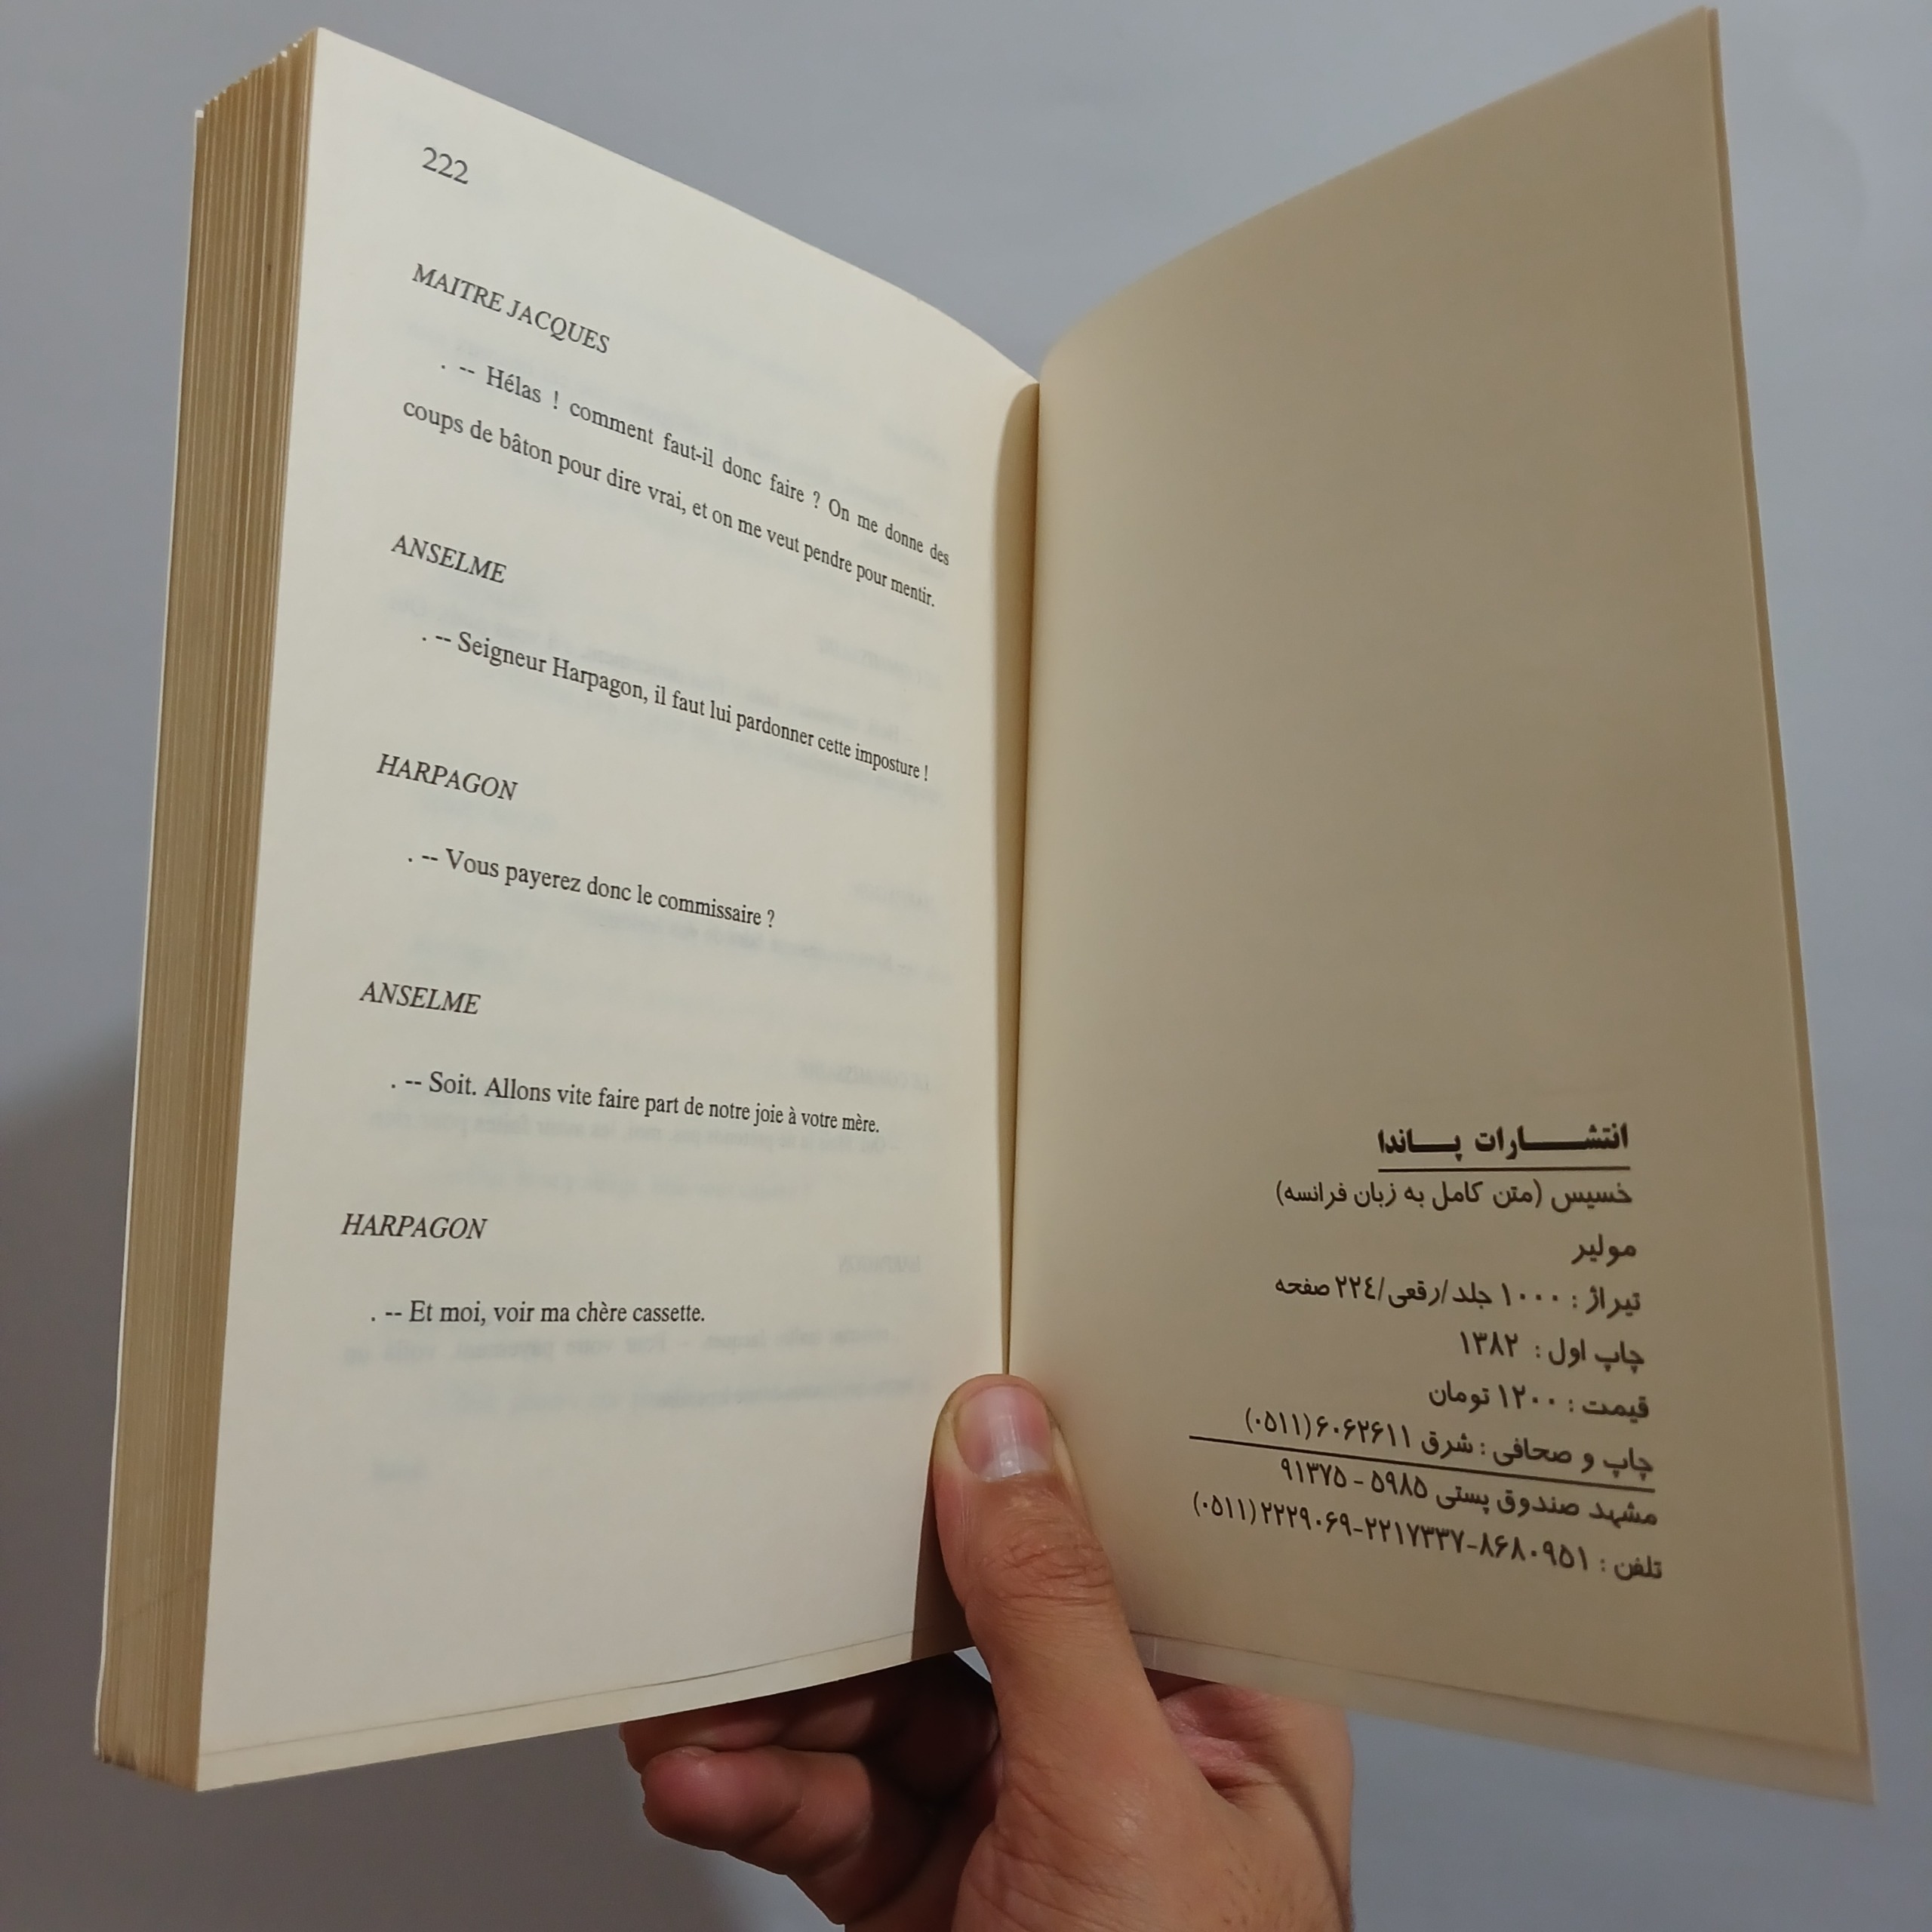 222
MAITRE JACQUES
. -- Hélas ! comment faut-il donc faire ? On me donne des
coups de bâton pour dire vrai, et on me veut pendre pour mentir.
ANSELME
. -- Seigneur Harpagon, il faut lui pardonner cette imposture !
HARPAGON
. -- Vous payerez donc le commissaire ?
ANSELME
. -- Soit. Allons vite faire part de notre joie à votre mère.
HARPAGON
. -- Et moi, voir ma chère cassette.
انتشـــــارات پـــاندا
خسیس (متن کامل به زبان فرانسه)
مولیر
تیراژ : ۱۰۰۰ جلد/رقعی/۲۲٤ صفحه
چاپ اول : ۱۳۸۲
قیمت : ۱۲۰۰ تومان
چاپ و صحافی : شرق ۶۰۶۲۶۱۱(۰۵۱۱)
مشهد صندوق پستی ۵۹۸۵ - ۹۱۳۷۵
تلفن : ۸۶۸۰۹۵۱-۲۲۱۷۳۳۷-۲۲۲۹۰۶۹(۰۵۱۱)